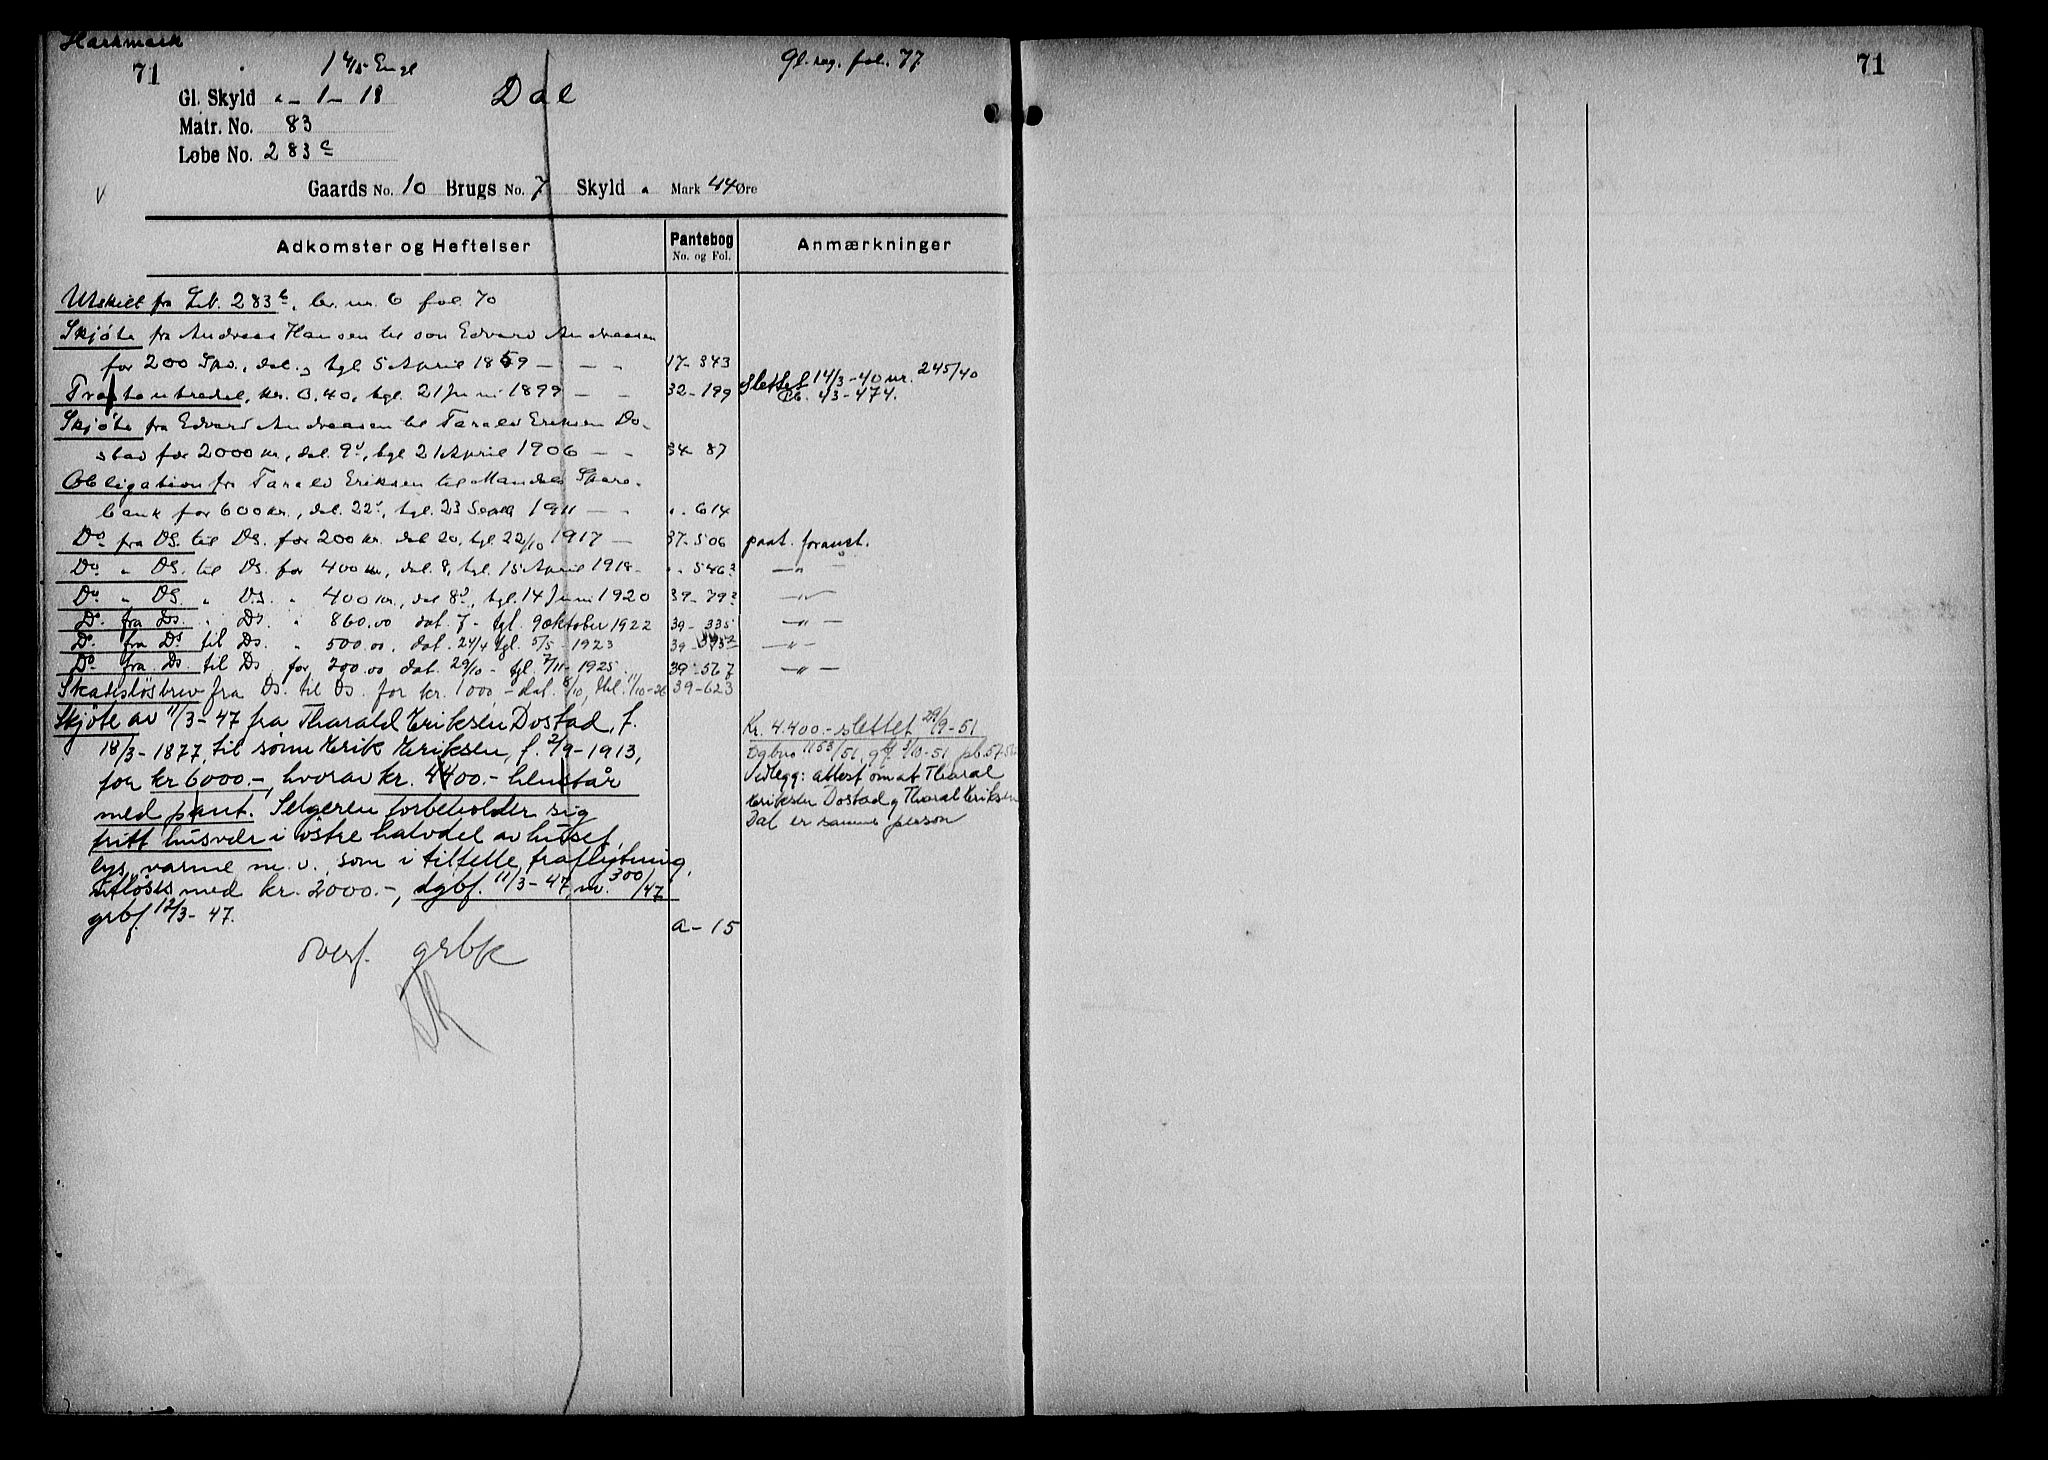 Harkmark
71
1 4/15 Engl
Gl. reg. fol. 77
71
Gl. Skyld " - 1 - 18
Dal
Matr. No. 83
Løbe No. 283 c
Gaards No. 10 Brugs No. 7 Skyld " Mark 44 Øre
Adkomster og Heftelser
Pantebog
No. og Fol.
Anmærkninger
Utskilt fra Lb. 283 b, br. nr. 6 fol 70
Skjøte fra Andreas Hansen til søn Edvard Andreassen
for 200 Spd., dat. , tgl 5 April 1859 — — — 17-343
32-199 slettet 14/3-40 nr. 245/40
kr. 0.40, tgl. 21 Juni 1899 — —
Pb. 43-474.
Skjøte fra Edvard Andreassen til Tarald Eriksen Do-
stad for 2000 kr., dat. 9 d, tgl 21 April 1906 — — 34-87
Obligation fra Tarald Eriksen til Mandals Spare-
bank for 600 kr., dat. 22 d, tgl. 23 1911 — — " . 614
Do fra DS. til DS. for 200 kr. dat 20, tgl. 22/10 1917 — 37-506 paat. foranst.
Do " DS. til DS. for 400 kr., dat. 8, tgl. 15 April 1918 - " . 546 — " —
Do " DS. " DS. " 400 kr., dat 8 d, tgl. 14 Juni 1920 39-79 — " —
Do fra Ds. " Ds. " 860.00 dat. 7 - tgl. 9 oktober 1922 39-335 — " —
Do fra Ds til Ds. " 500.00, dat. 24/4 tgl. 5/5 - 1923 39- — " —
Do fra Ds. til Ds. for 200.00 dat. 29/10 - tgl. 7/11 - 1925. 39-567 — " —
Skadesløsbrev fra Ds. til Ds. for kr. 1000,- dat. 8/10, tbl. 11/10-26 39-623
Skjøte av 11/3-47 fra Tharald Eriksen Dostad, f.
18/3-1877, til sønn Erik Eriksen, f. 2/9-1913,
for kr 6000.-, hvorav kr. 4400.- henstår
med pant. Selgeren forbeholder sig
fritt husvær i østre halvdel av huset,
lys, varme m.v., som i tilfelle fraflytning,
utløses med kr. 2000.-, dgbf. 11/3-47, nr. 300/47
grbf. 12/3-47.
a-15
Kr. 4.400.- slettet 29/9-51
Dgbnr 1153/51, gbf 3/10-51, pb.
Vedlegg: attest om at Tharal
Eriksen Dostad og Tharal Eriksen
Dal er samme person
overf. grbk